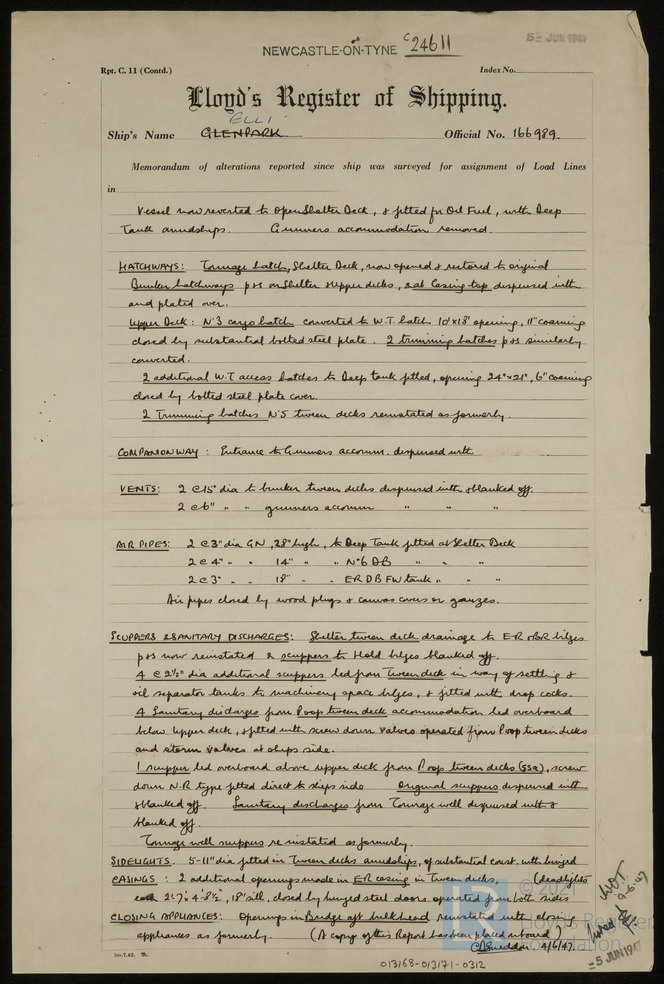 NEWCASTLE-ON-TYNE C 24611
5 JUN 1947
Rpt. C. 11 (Contd.) Index No.
Lloyd's Register of Shipping.
ELLI
Ship's Name GLENPARK Official No. 166989.
Memorandum of alterations reported since ship was surveyed for assignment of Load Lines
in
Vessel now reverted to Open Shelter Deck, & fitted for Oil Fuel, with Deep
Tank amidships. Gunners accommodation removed.
HATCHWAYS: Tonnage hatch, Shelter Deck, now opened & restored to original
Bunker hatchways p&s on Shelter & upper decks, & at Casing top dispensed with
and plated over.
Upper Deck: No 3 cargo hatch converted to W.T. hatch 10'x18' opening, 11" coaming
closed by substantial bolted steel plate. 2 trimming hatches p&s similarly
converted.
2 additional W.T access hatches to Deep tank fitted, opening 24"x21", 6" coaming
closed by bolted steel plate cover.
2 Trimming hatches No 5 tween decks reinstated as formerly.
COMPANIONWAY: Entrance to Gunners accomm. dispensed with
VENTS: 2 @ 15" dia to bunker tween decks dispensed with & blanked off.
2 @ 6" " " gunners accomm " " "
AIR PIPES: 2 @ 3" dia GN, 28" high, to Deep Tank fitted at Shelter Deck
2 @ 4" " 14" " " No 6 DB " " "
2 @ 3" " 18" " " ER DB FW tank " " "
Air pipes closed by wood plugs & canvas covers or gauzes.
SCUPPERS & SANITARY DISCHARGES: Shelter tween deck drainage to ER & BR bilges
p&s now reinstated & scuppers to Hold bilges blanked off.
4 @ 2½" dia additional scuppers led from Tween deck in way of settling &
oil separator tanks to machinery space bilges, & fitted with drop cocks.
4 Sanitary discharges from Poop tween deck accommodation led overboard
below upper deck, & fitted with screw down valves operated from Poop tween decks
and storm valves at ships side.
1 scupper led overboard above upper deck from Poop tween decks, screw
down N.R type fitted direct to ships side Original scuppers dispensed with
& blanked off. Sanitary discharges from Tonnage well dispensed with &
blanked off.
Tonnage well scuppers reinstated as formerly.
SIDELIGHTS. 5-11" dia fitted in Tween decks amidships, of substantial const. with hinged
CASINGS: 2 additional openings made in ER casing in Tween decks, (deadlights
each 2'7" 4'8½", 18" sill, closed by hinged steel doors operated from both sides
CLOSING APPLIANCES: Openings in Bridge aft bulkhead reinstated with closing
appliances as formerly. (A copy of this Report has been placed onboard)
4/6/47
9-6-47
5 JUN 1947
013168-013171-0312
© 2021
LR
Lloyd's Register
Foundation